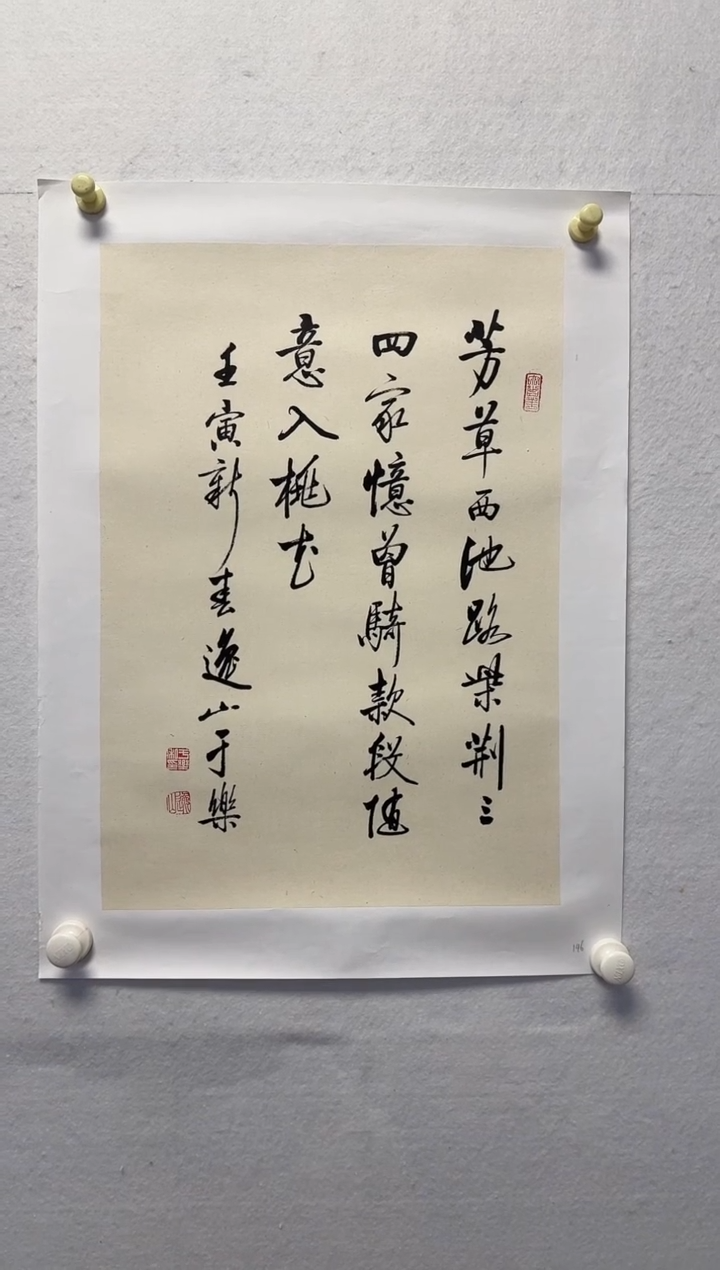 芳草西池路柴荆三
四家憶曾騎款段随
意入桃花
壬寅新春逸山于樂
196